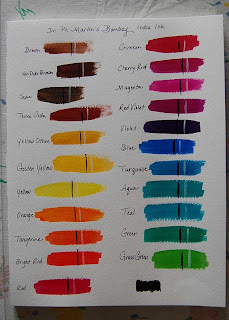 Dr. Ph. Martin's Bombay India Ink
Brown
Van Dyke Brown
Sepia
Terra Cotta
Yellow Ochre
Golden Yellow
Yellow
Orange
Tangerine
Bright Red
Red
Crimson
Cherry Red
Magenta
Red Violet
Violet
Blue
Turquoise
Aqua
Teal
Green
Grass Green